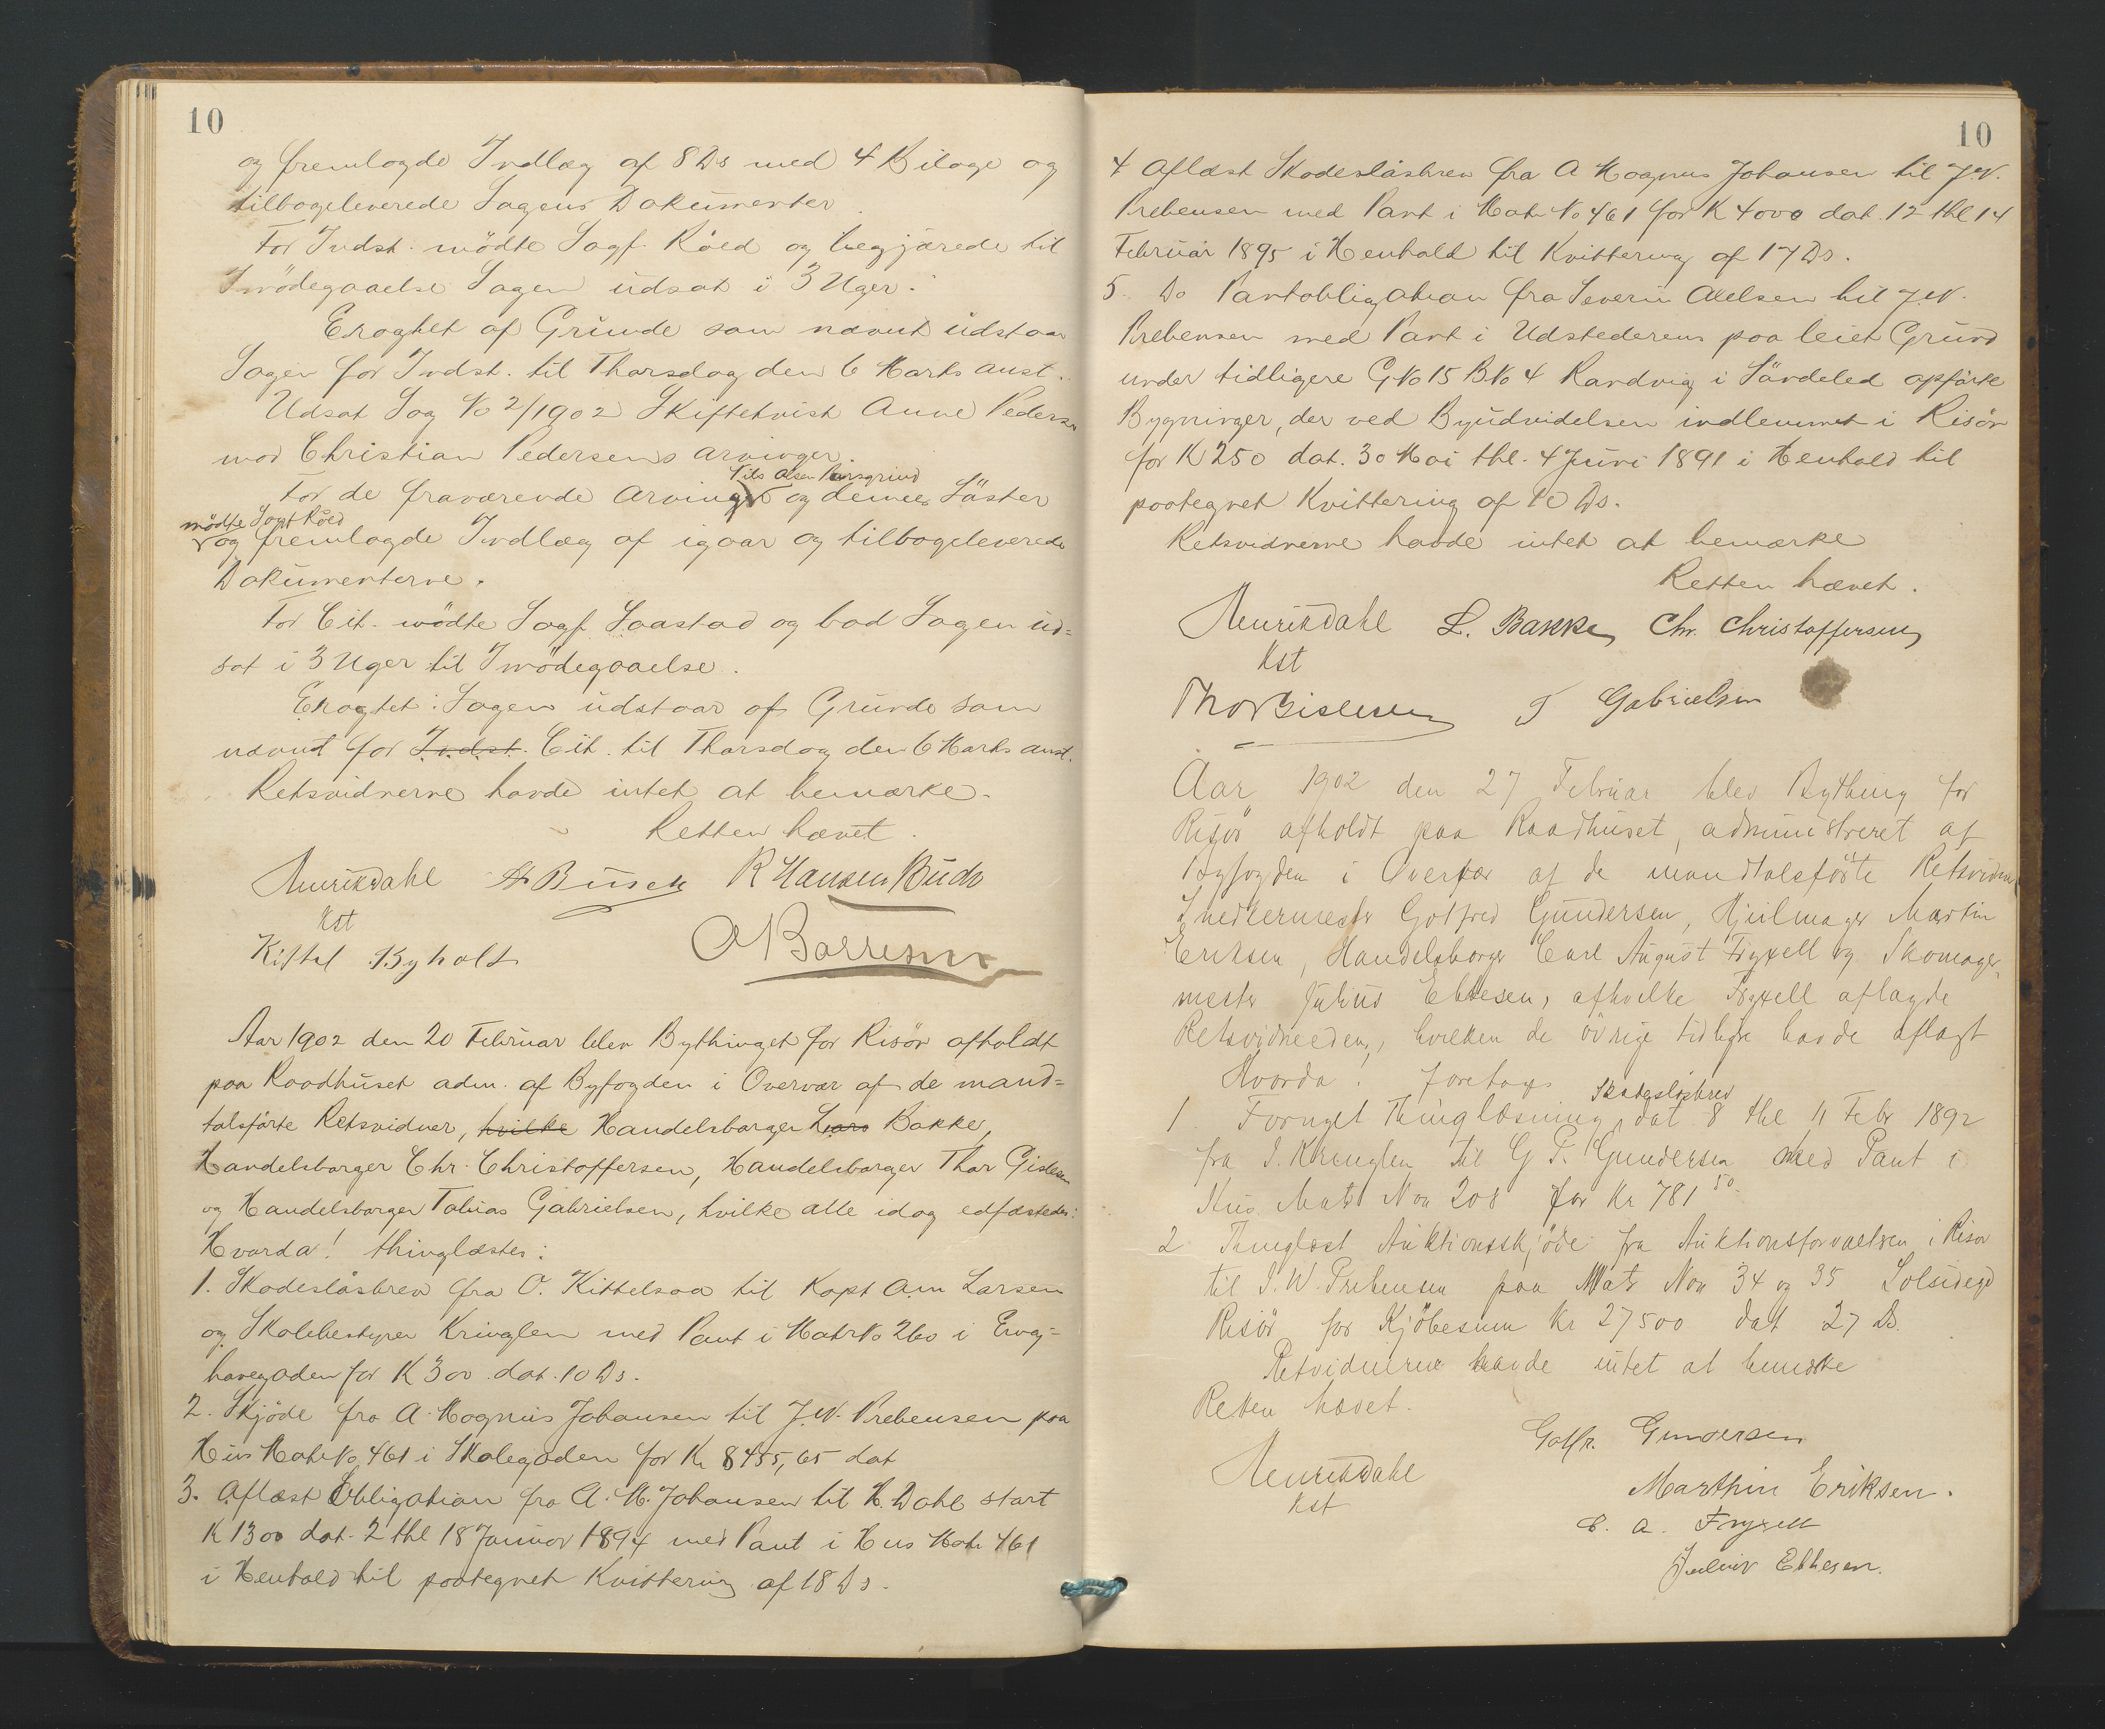 10
og fremlagde Indlæg af 8 Ds med 4 Bilage og
tilbageleverede Sagens Dokumenter.
For Indst. mödte Sagf. Röed og begjærede til
Imödegaaelse Sagen udsat i 3 Uger.
Eragtet af Grunde som nævnt udstaar
Sagen for Indst. til Tharsdag den 6 Marts anst.
Udsat Sag No 2/1902 Skiftetvist Anne Peders
mod Christian Pedersens arvinger.
Nils Olsen Porsgrund
For de fraværende Arvinger og dennes Söster
mödte Sagf Röed
og fremlagde Indlæg af igaar og tilbageleverede
Dokumenterne.
For Cit. mödte Sagf. Saastad og bad Sagen ud=
sat i 3 Uger til Imödegaaelse.
Eragtet: Sagen udstaar af Grunde som
nævnt for Indst. Cit. til Tharsdag den 6 Marts anst.
Retsvidnerne havde intet at bemærke.
Retten hævet.
Henrikdahl A Busch R Hansen Budo
Kst
Kittel Byholt O Borresen
Aar 1902 den 20 Februar blev Bythinget for Risör afholdt
paa Raadhuset adm. af Byfogden i Overvær af de mand=
talsförte Retsvidner, hvilke Handelsborger Lars Bakke,
Handelsborger Chr. Christoffersen, Handelsborger Thor Gislesen
og Handelsborger Tobias Gabrielsen, hvilke alle idag edfæstedes:
Hvorda! thinglæstes:
1. Skadeslösbrev fra O. Kittelsaa til Kapt Am Larsen
og Skolebestyrer Kringlen med Pant i Matr No 260 i Eng=
havegaden for K 300 dat. 10 Ds.
2. Skjöde fra A. Magnus Johansen til J.W. Prebensen paa
Hus Matr No 461 i Skolegaden for Kr 8455,65 dat
3. Aflæst Obligation fra A. M. Johansen til H. Dahl start
K 1300 dat. 2 thl 18 Januar 1894 med Pant i Hus Matr 461
i Henhold til paategnet Kvittering af 18 Ds.
10
4 Aflæst Skadeslösbrev fra A Magnus Johansen til J.W.
Prebensen med Pant i Matr No 461 for K 4000 dat. 12 thl 14
Februar 1895 i Henhold til Kvittering af 17 Ds.
5. Do Pantobligation fra Severin Axelsen til J.W.
Prebensen med Pant i Udstederens paa leiet Grund
under tidligere G No 15 B No 4 Randvig i Söndeled opförte
Bygninger, der ved Byudvidelsen indlemmet i Risör
for K 250 dat. 30 Mai thl. 4 Juni 1891 i Henhold til
paategnet Kvittering af 10 Ds.
Retsvidnerne havde intet at bemærke
Retten hævet.
Henrikdahl L. Bakke Chr. Christoffersen
Kst
Thor Gislesen T Gabrielsen
Aar 1902 den 27 Februar blev Bything for
Risör afholdt paa Raadhuset, administreret af
Byfogden i Overvær af de mandtalsförte Retsvidner
Snedkermester Gotfred Gundersen, Hjulmager Martin
Eriksen, Handelsborger Carl August Fryxell og Skomager=
mester Julius Ebbesen, afhvilke Fryxell aflagde
Retsvidneeden, hvilken de övrige tidligere havde aflagt
Hvorda! foretoges
Skadeslösbrev
1 Fornyet Thinglæsning, dat 8 thl 11 Febr 1892
fra J. Kringlen til G T. Gundersen med Pant i
Hus Matr Non 208 for Kr 781 50.
2 Thinglæst Auktionsskjöde fra Auktionsforvalteren i Risör
til J. W. Prebensen paa Matr Non 34 og 35 Solsiden
Risör for Kjöbesum Kr 27500 dat 27 Ds.
Retsvidnerne havde intet at bemærke
Retten hævet.
Gotfr. Gundersen
Henrikdahl
Kst
Marthin Eriksen.
C. A. Fryxell
Julius Ebbesen.